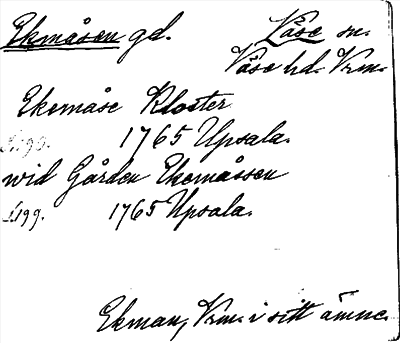 Ekmåsen gd. Väse sn.
Väse hd. Vrm.
Ekemåse Kloster
s. 199. 1765 Upsala.
wid Gården Ekemåssen
s. 199. 1765 Upsala.
Ekman, Vrm. i sitt ämne.